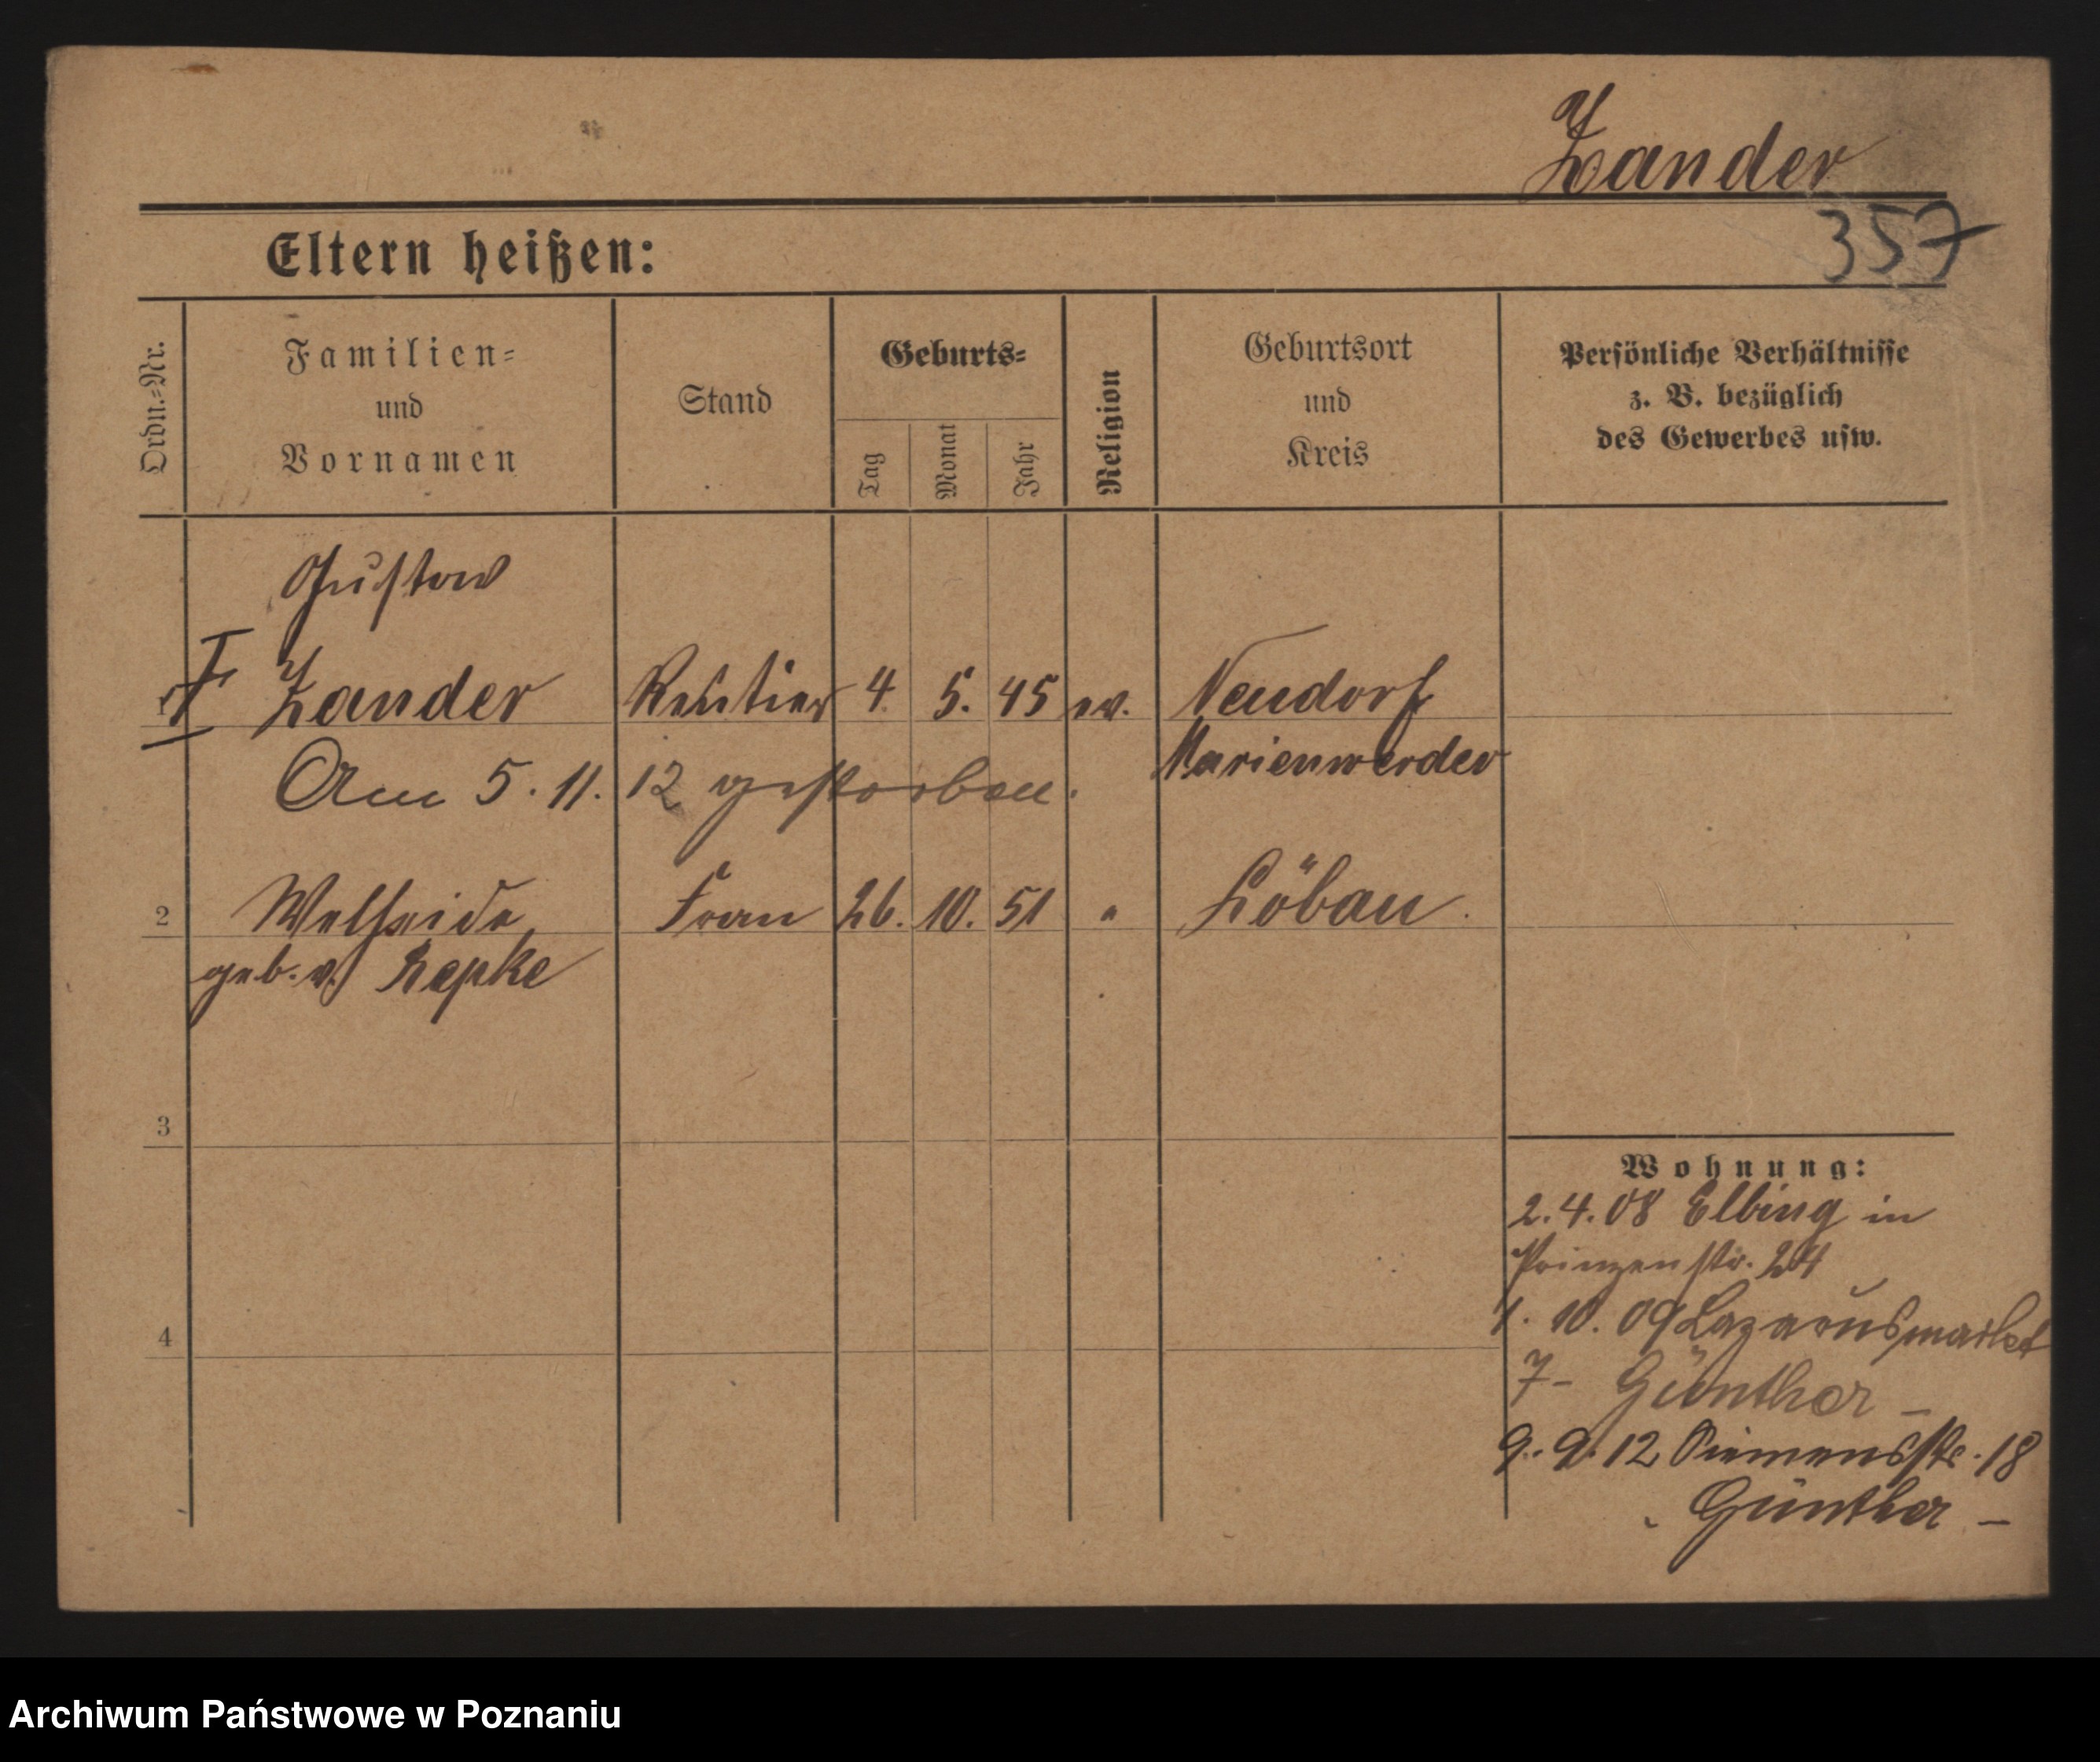 Zander
357
Eltern heißen:
Ordn.-Nr.
Familien-
und
Vornamen
Stand
Geburts-
Tag
Monat
Jahr
Religion
Geburtsort
und
Kreis
Persönliche Verhältnisse
z. B. bezüglich
des Gewerbes usw.
Gustav
1 Zander Rentier 4. 5. 45 ev. Neudorf
Marienwerder
Am 5. 11. 12 gestorben.
2 Frau 26. 10. 51 " Löbau.
geb. v. Repke
3
4
Wohnung:
2. 4. 08 Elbing in
Prinzenstr. 24
1. 10. 09 Lazarusmarkt
7 - Günther -
9. 9. 12 Siemensstr. 18
Günther -
Archiwum Państwowe w Poznaniu